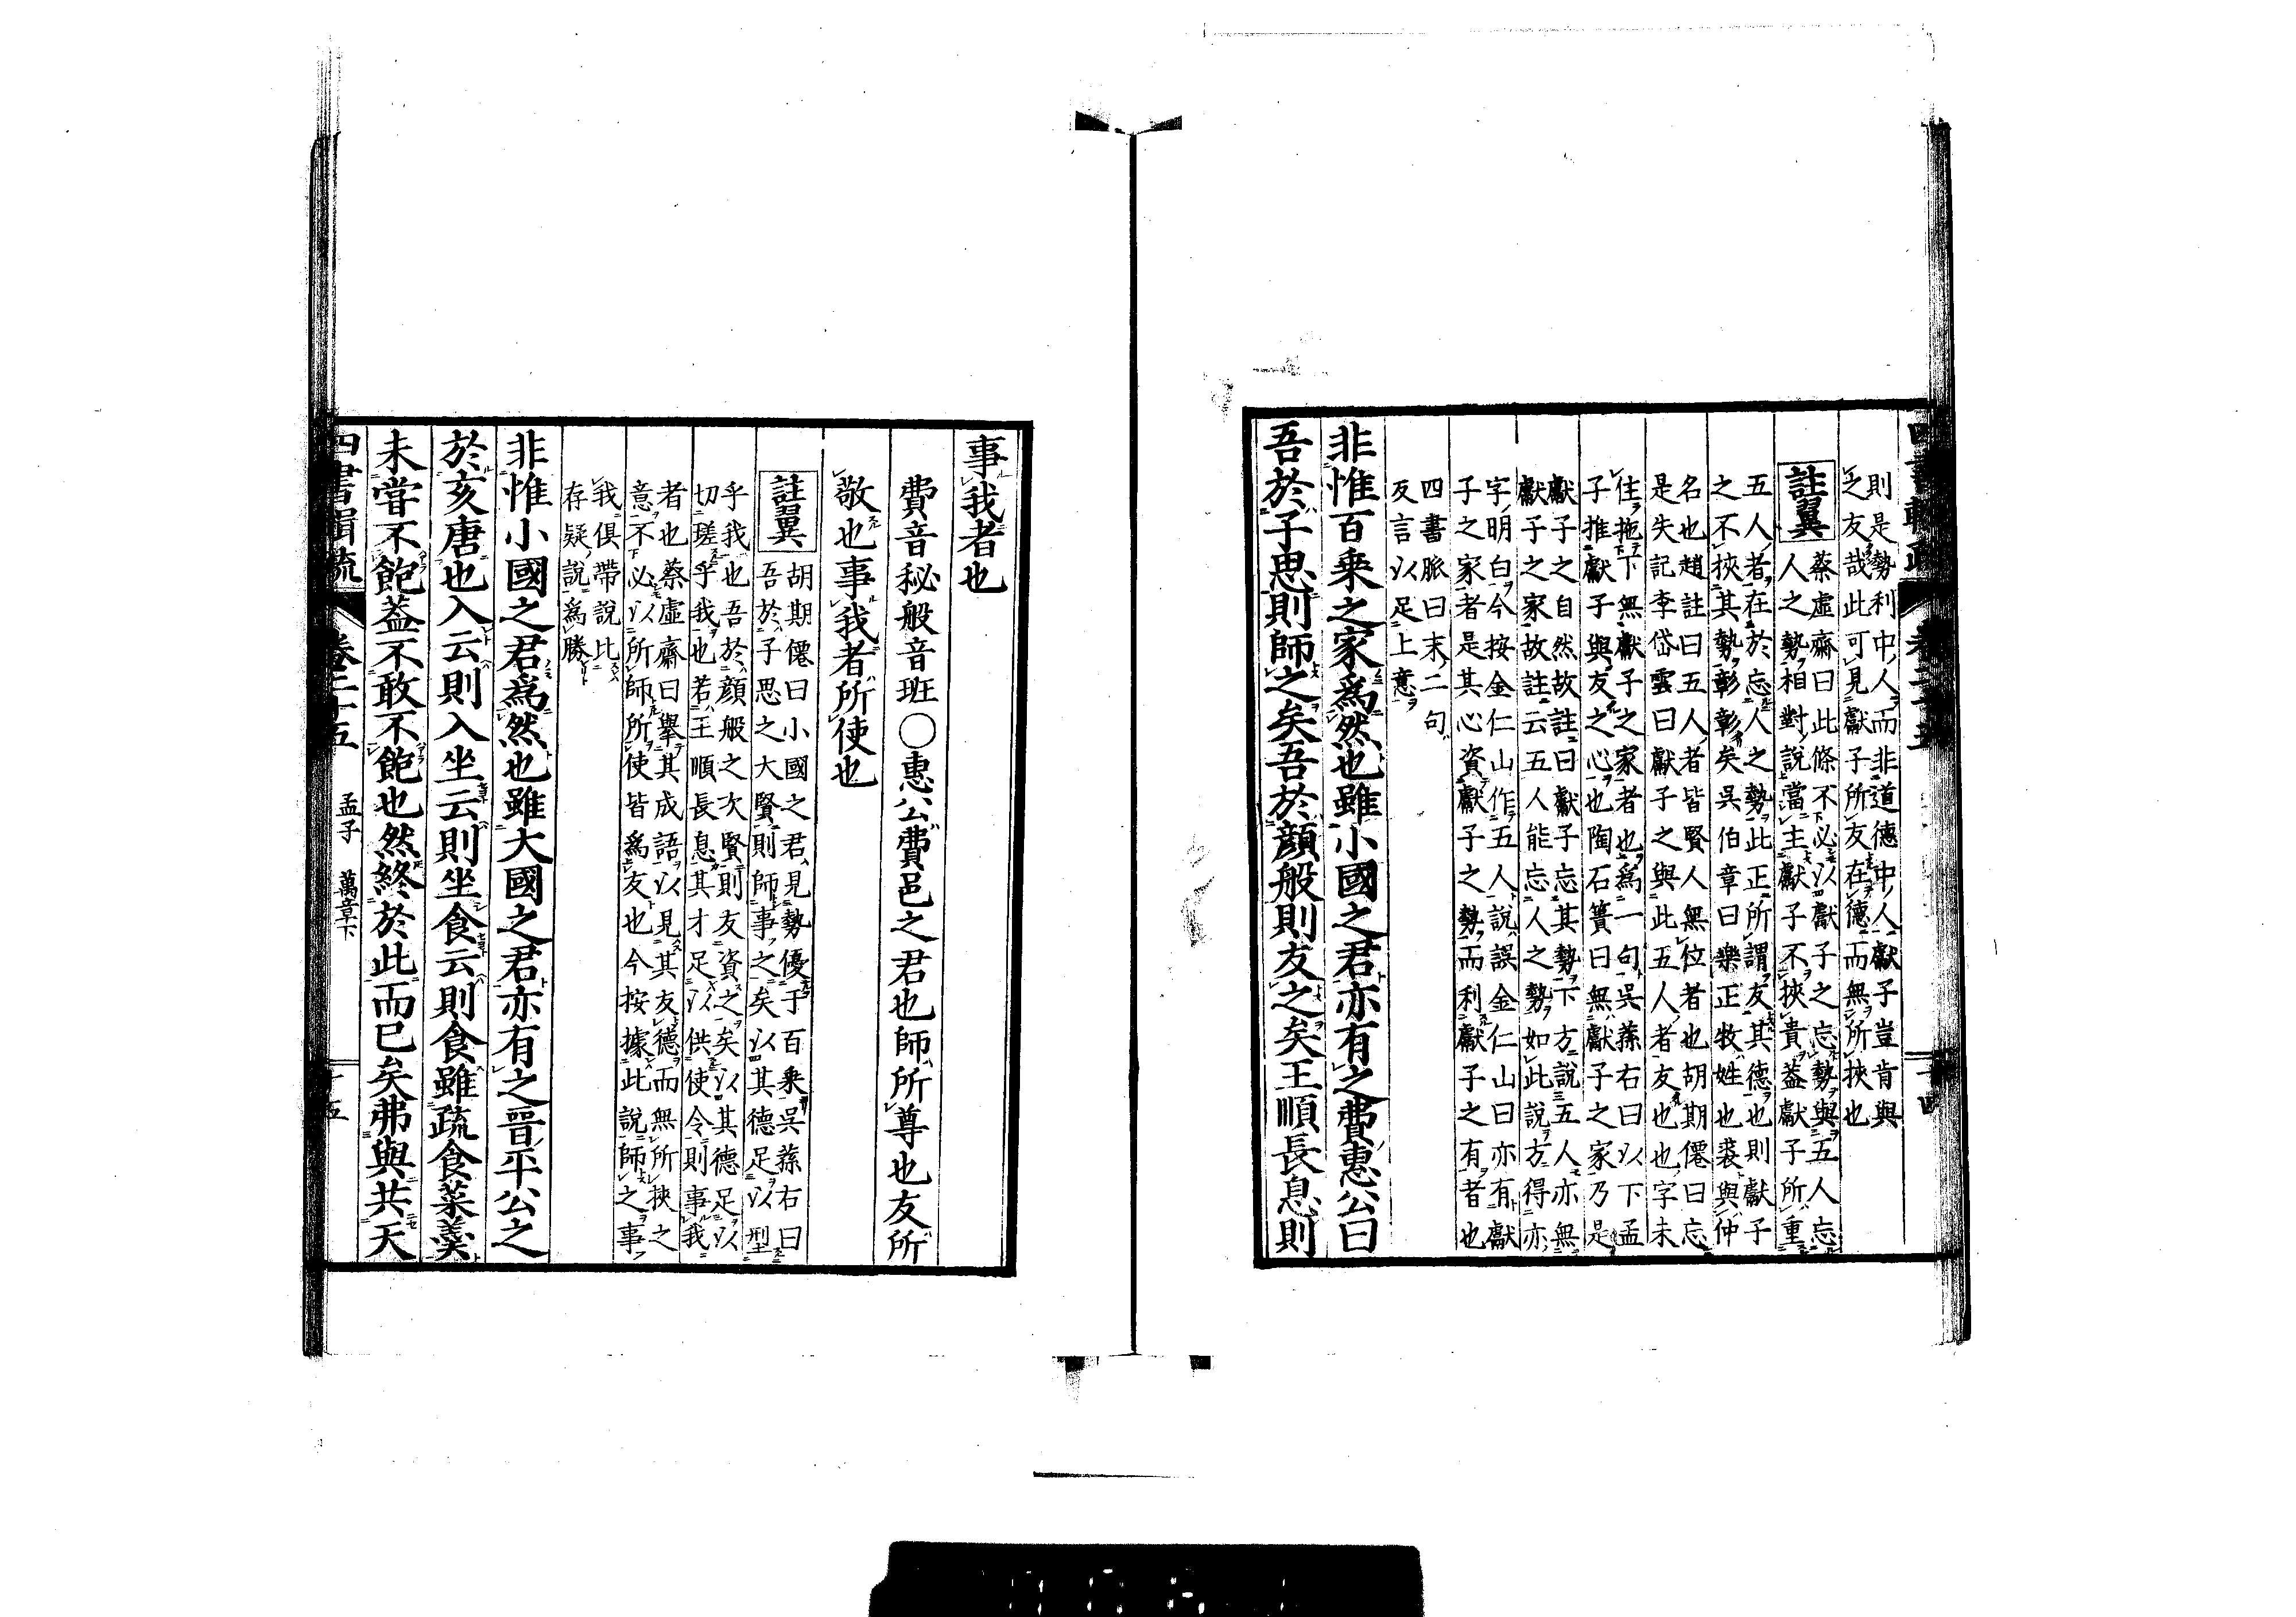 則是勢利中人而非道德中人獻子豈肯與
之友哉此可見獻子所友在德而無所挾也
註翼
蔡虛齋曰此條不必以獻子之忘勢與五人忘
人之勢相對說當主獻子不挾貴葢獻子所重
五人者在於忘人之勢此正所謂友其德也則獻子
之不挾其勢彰彰矣吳伯章曰樂正牧姓也裘與仲
名也趙註曰五人者皆賢人無位者也胡期僊曰忘
是失記李岱雲曰獻子之與此五人者友也也字未
住拖下無獻子之家者也爲一句吳蓀右曰以下孟
子推獻子與友之心也陶石簣曰無獻子之家乃是
獻子之自然故註曰獻子忘其勢下方說五人亦無
獻子之家故註云五人能忘人之勢如此說方得亦
字明白今按金仁山作五人說誤金仁山曰亦有獻
子之家者是其心資獻子之勢而利獻子之有者也
四書脈曰末二句
反言以足上意
非惟百乘之家爲然也雖小國之君亦有之費惠公曰
吾於子思則師之矣吾於顔般則友之矣王順長息則
事我者也
費音秘般音班○惠公費邑之君也師所尊也友所
敬也事我者所使也
註翼
胡期僊曰小國之君見勢優于百乘吳蓀右曰
吾於子思之大賢則師事之矣以其德足以型
乎我也吾於顔般之次賢則友資之矣以其德足以
切瑳乎我也若王順長息其才足以供使令則事我
者也蔡虛齋曰擧其成語以見其友德而無所挾之
意不必以所師所使皆爲友也今按據此說師之事
我俱帶說比
存疑說爲勝
非惟小國之君爲然也雖大國之君亦有之晉平公之
於亥唐也入云則入坐云則坐食云則食雖疏食菜羮
未甞不飽葢不敢不飽也然終於此而已矣弗與共天
四書輯疏 卷二十五 孟子 萬章下 十五